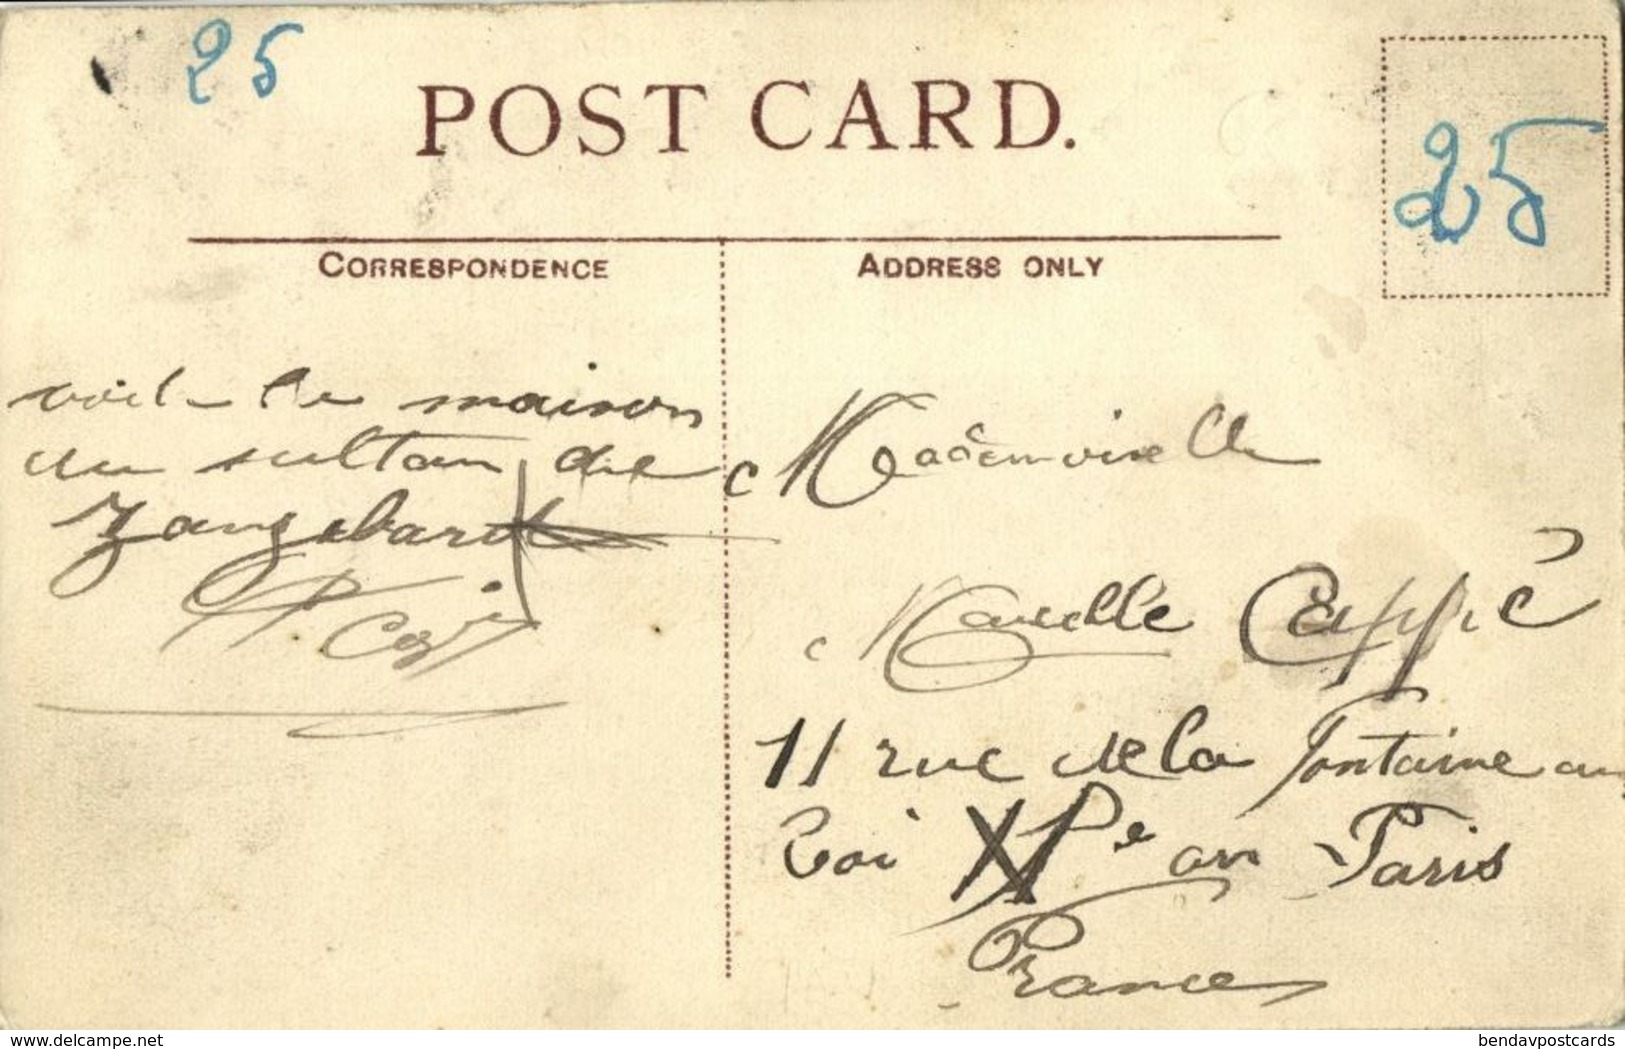 25
POST CARD.
25
CORRESPONDENCE
ADDRESS ONLY
voila la maison
du sultan de
Zanzebard
Mademoiselle
Marcelle Cappé
11 rue de la Fontaine au
Roi XIe arr Paris
France
delcampe.net
bendavpostcards